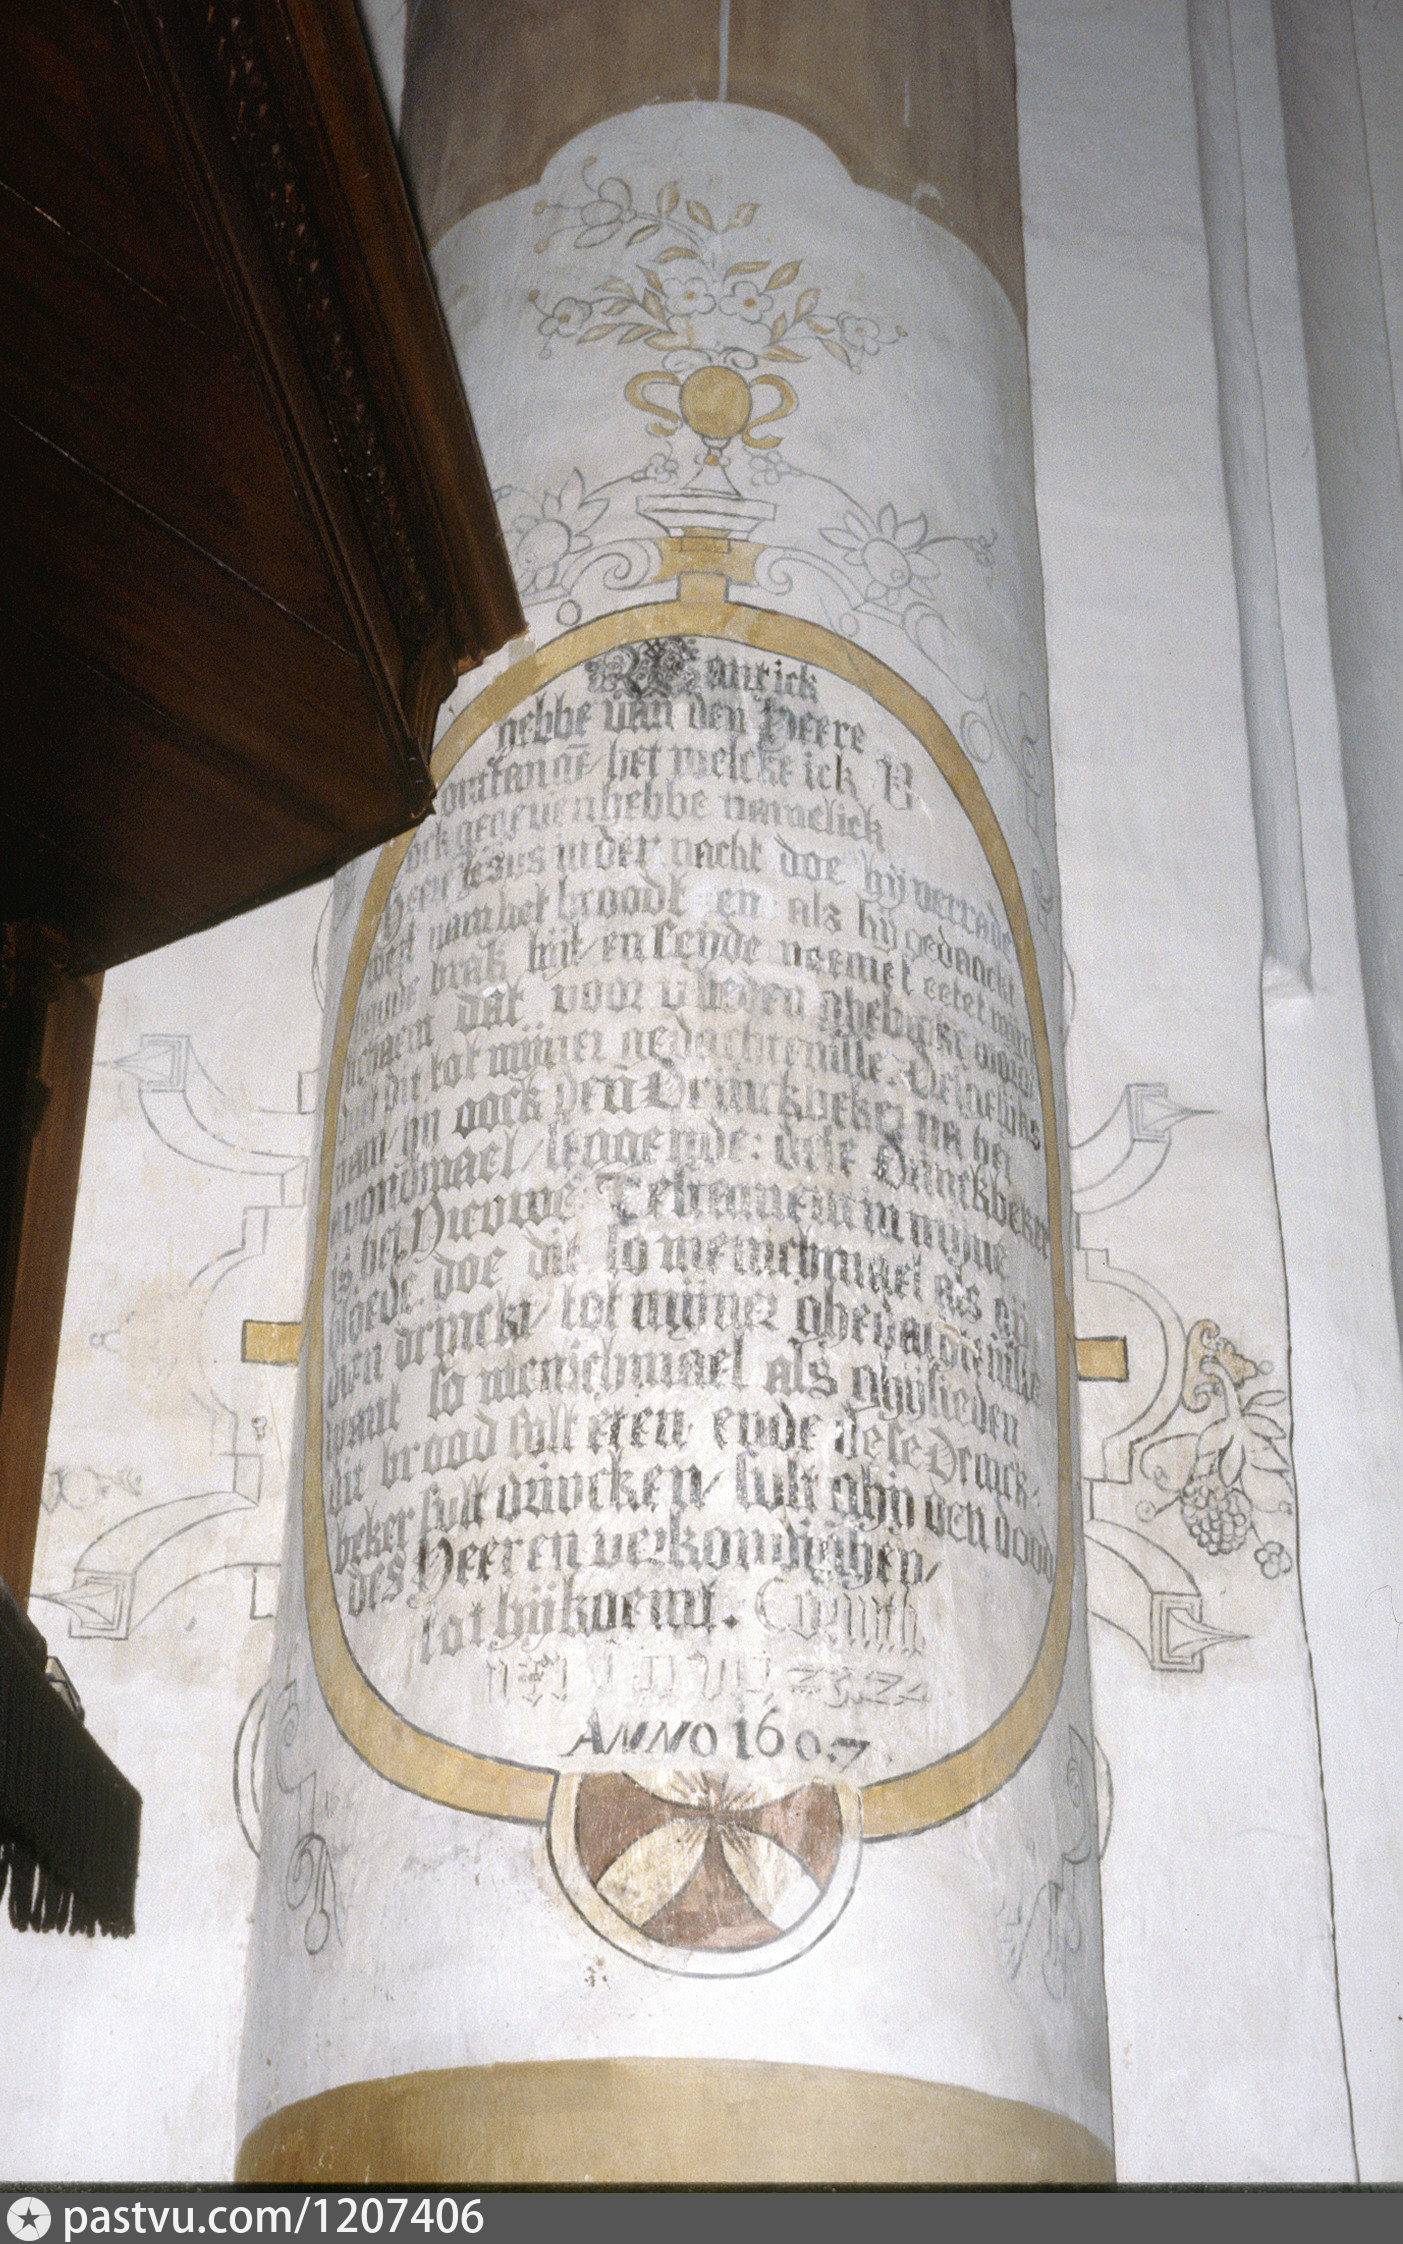 Want ick
hebbe van den Heere
ontfangē/ het welcke ick V
ock gegeven hebbe namelick
Heere Jesus in der nacht doe hij verrade
wert nam het broodt en als hij gedanckt
hadde brak hijt/ en seyde neemet eetet mijn
lichaem dat voor vlieden ghebroken wordt
doet dit tot mijner gedachtenisse. Desgelijcks
nam hy oock den Drinckbeker na het
avondmael/ seggende: dese Drinckbeker
is het Nieuwe Testament in mijne
bloede doe dit so menichmael als gij
dien drinckt/ tot mijner ghedachtenisse
want so menichmael als ghijlieden
dit brood sult eten ende dese Drinck-
beker sult drincken/ sult ghij den dood
des Heeren verkondighen/
tot hij koemt. Corinth.
ANNO 1607
pastvu.com/1207406